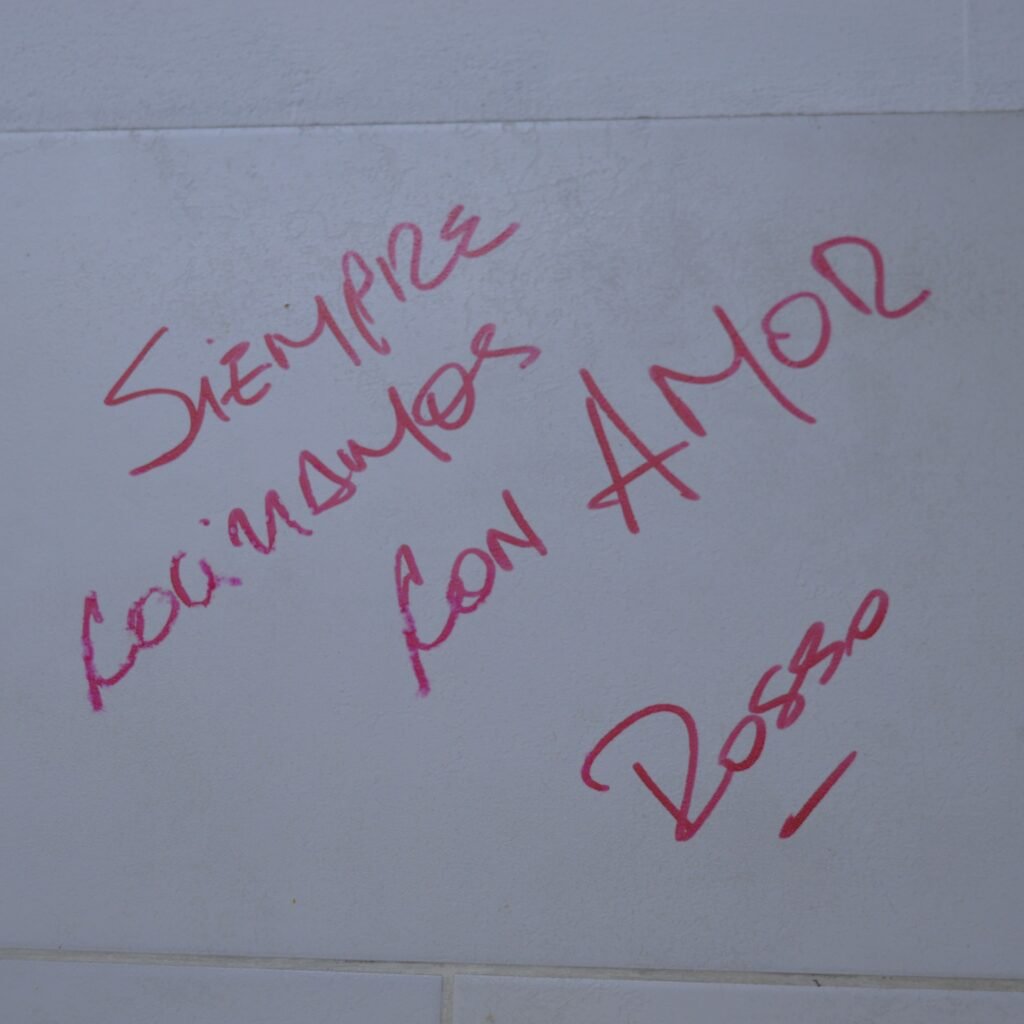 SIEMPRE
COCINAMOS
CON AMOR
ROSSO